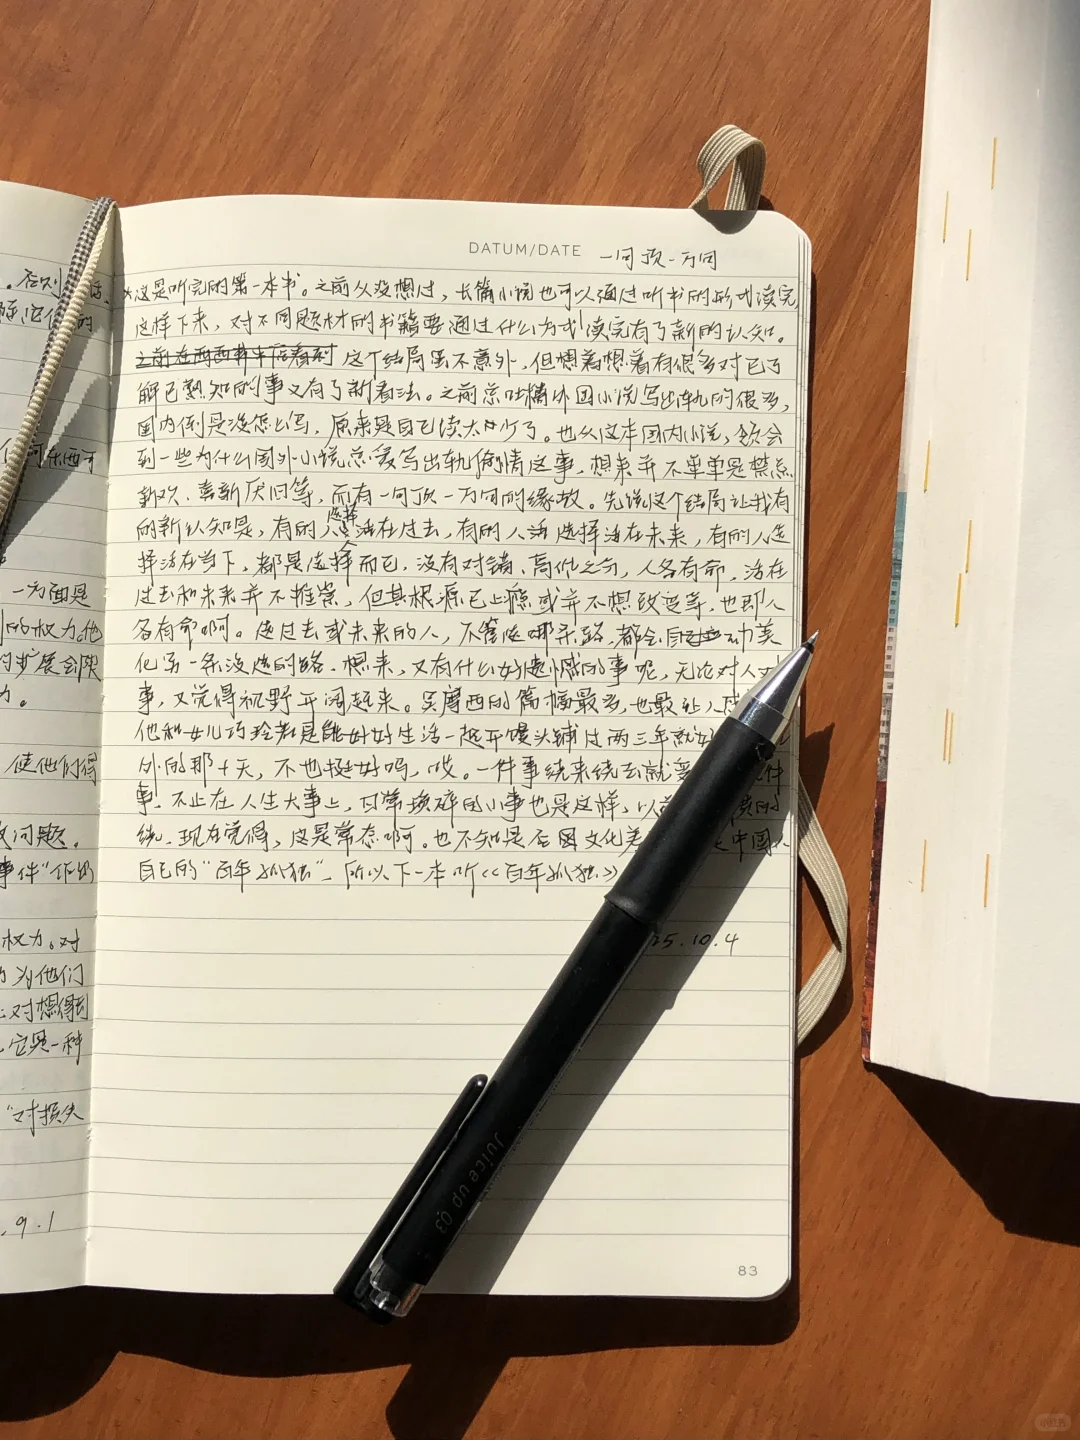 DATUM/DATE 一句顶一万句
*这是听完的第一本书。之前从没想过，长篇小说也可以通过听书的形式读完
这样下来，对不同题材的书籍要通过什么方式读完有了新的认知。
这个结局虽不意外，但想着想着有很多对已了
解已熟知的事又有了新看法。之前总吐槽外国小说写出轨的很多，
国内倒是没怎么写，原来是自己读太少了。也从这本国内小说，领会
到一些为什么国外小说总爱写出轨偷情这事，想来并不单单是禁忌
新欢、喜新厌旧等，而有一句顶一万句的缘故。先说这个结局让我有
的新认知是，有的人选择活在过去，有的人选择活在未来，有的人选
择活在当下，都是选择而已，没有对错、高低之分，人各有命，活在
过去和未来并不推崇，但其根源已上瘾或并不想改变等，也即人
各有命啊。选过去或未来的人，不管选哪条路，都会自动美
化另一条没选的路。想来，又有什么好遗憾的事呢，无论对人
事，又觉得视野开阔起来。吴摩西的篇幅最多，也最让人
他和女儿巧玲若是能好好生活一起开馒头铺过两三年就好
外的那十天，不也挺好吗，哎。一件事绕来绕去就变 件
事，不止在人生大事上，日常琐碎的小事也是这样，以前
绕，现在觉得，这是常态啊。也不知是否因文化差 中国人
自己的“百年孤独”，所以下一本听《百年孤独》
25.10.4
Juice up 03
83
。否则 话、
一方面是
的权力，他
的扩展会限
力。
使他们得
问题。
事件”作的
权力。对
为他们
对想得到
，它是一种
“对损失
.9.1
小红书